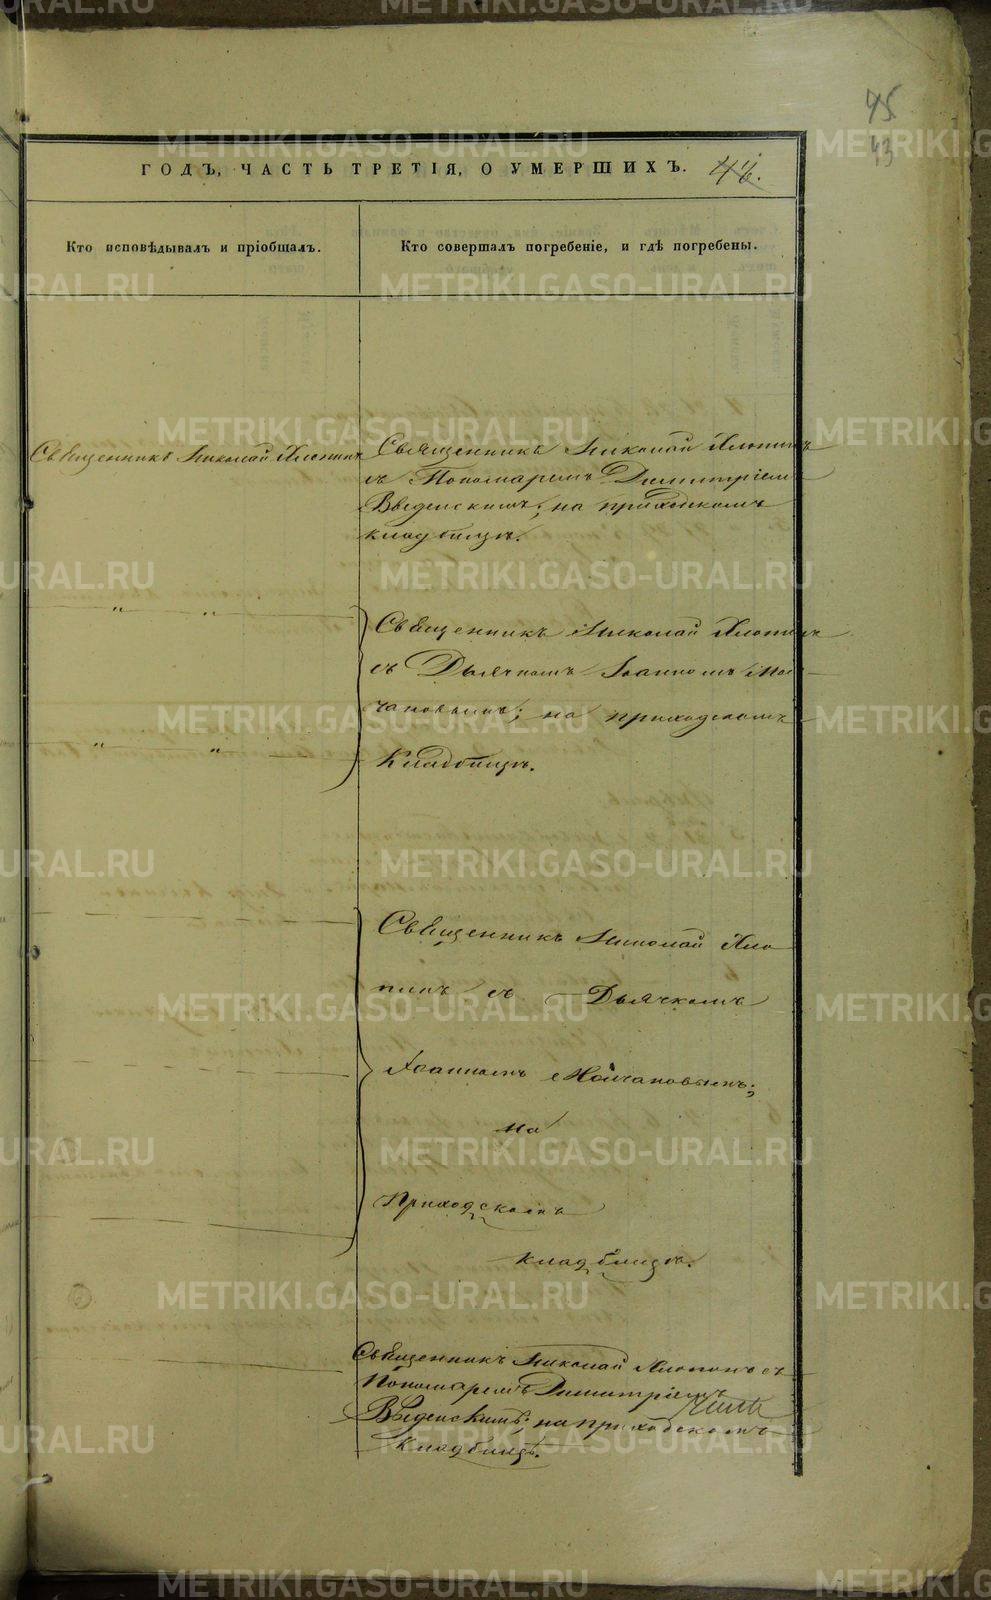 45
43
ГОДЪ, ЧАСТЬ ТРЕТІЯ, О УМЕРШИХЪ. 46.
Кто исповѣдывалъ и пріобщалъ.
Кто совершалъ погребеніе, и гдѣ погребены.
Священникъ Николай Хлопинъ
Священникъ Николай Хлопинъ
съ Пономаремъ Димитріемъ
Введенскимъ; на приходскомъ
кладбищѣ.
" "
Священникъ Николай Хлопинъ
съ Дьячкомъ Іоанномъ Мол
чановымъ; на приходскомъ
" "
Кладбищѣ.
Священникъ Николай Хло
пинъ съ Дьячкомъ
Іоанномъ Молчановымъ;
на
Приходскомъ
кладбищѣ.
Священникъ Николай Хлопинъ съ
Пономаремъ Димитріемъ
Введенскимъ; на приходскомъ
Кладбищѣ.
METRIKI.GASO-URAL.RU